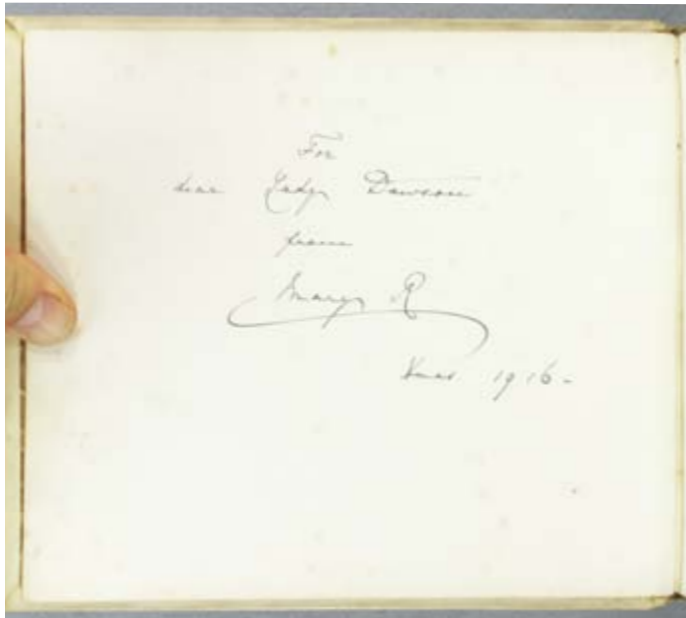 For
dear Lady Dawson
from
Mary R
Xmas 1916-